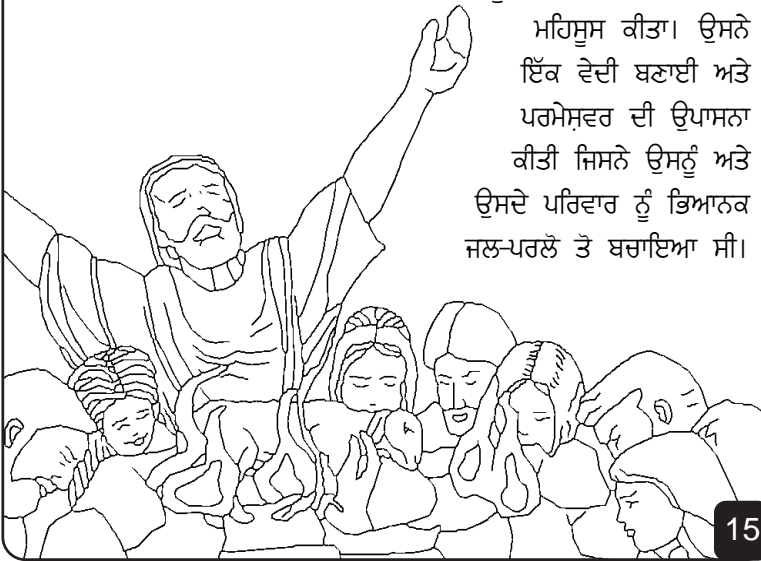 ਮਹਿਸੂਸ ਕੀਤਾ। ਉਸਨੇ
ਇੱਕ ਵੇਦੀ ਬਣਾਈ ਅਤੇ
ਪਰਮੇਸ਼ਵਰ ਦੀ ਉਪਾਸਨਾ
ਕੀਤੀ ਜਿਸਨੇ ਉਸਨੂੰ ਅਤੇ
ਉਸਦੇ ਪਰਿਵਾਰ ਨੂੰ ਭਿਆਨਕ
ਜਲ-ਪਰਲੋ ਤੋ ਬਚਾਇਆ ਸੀ।
15